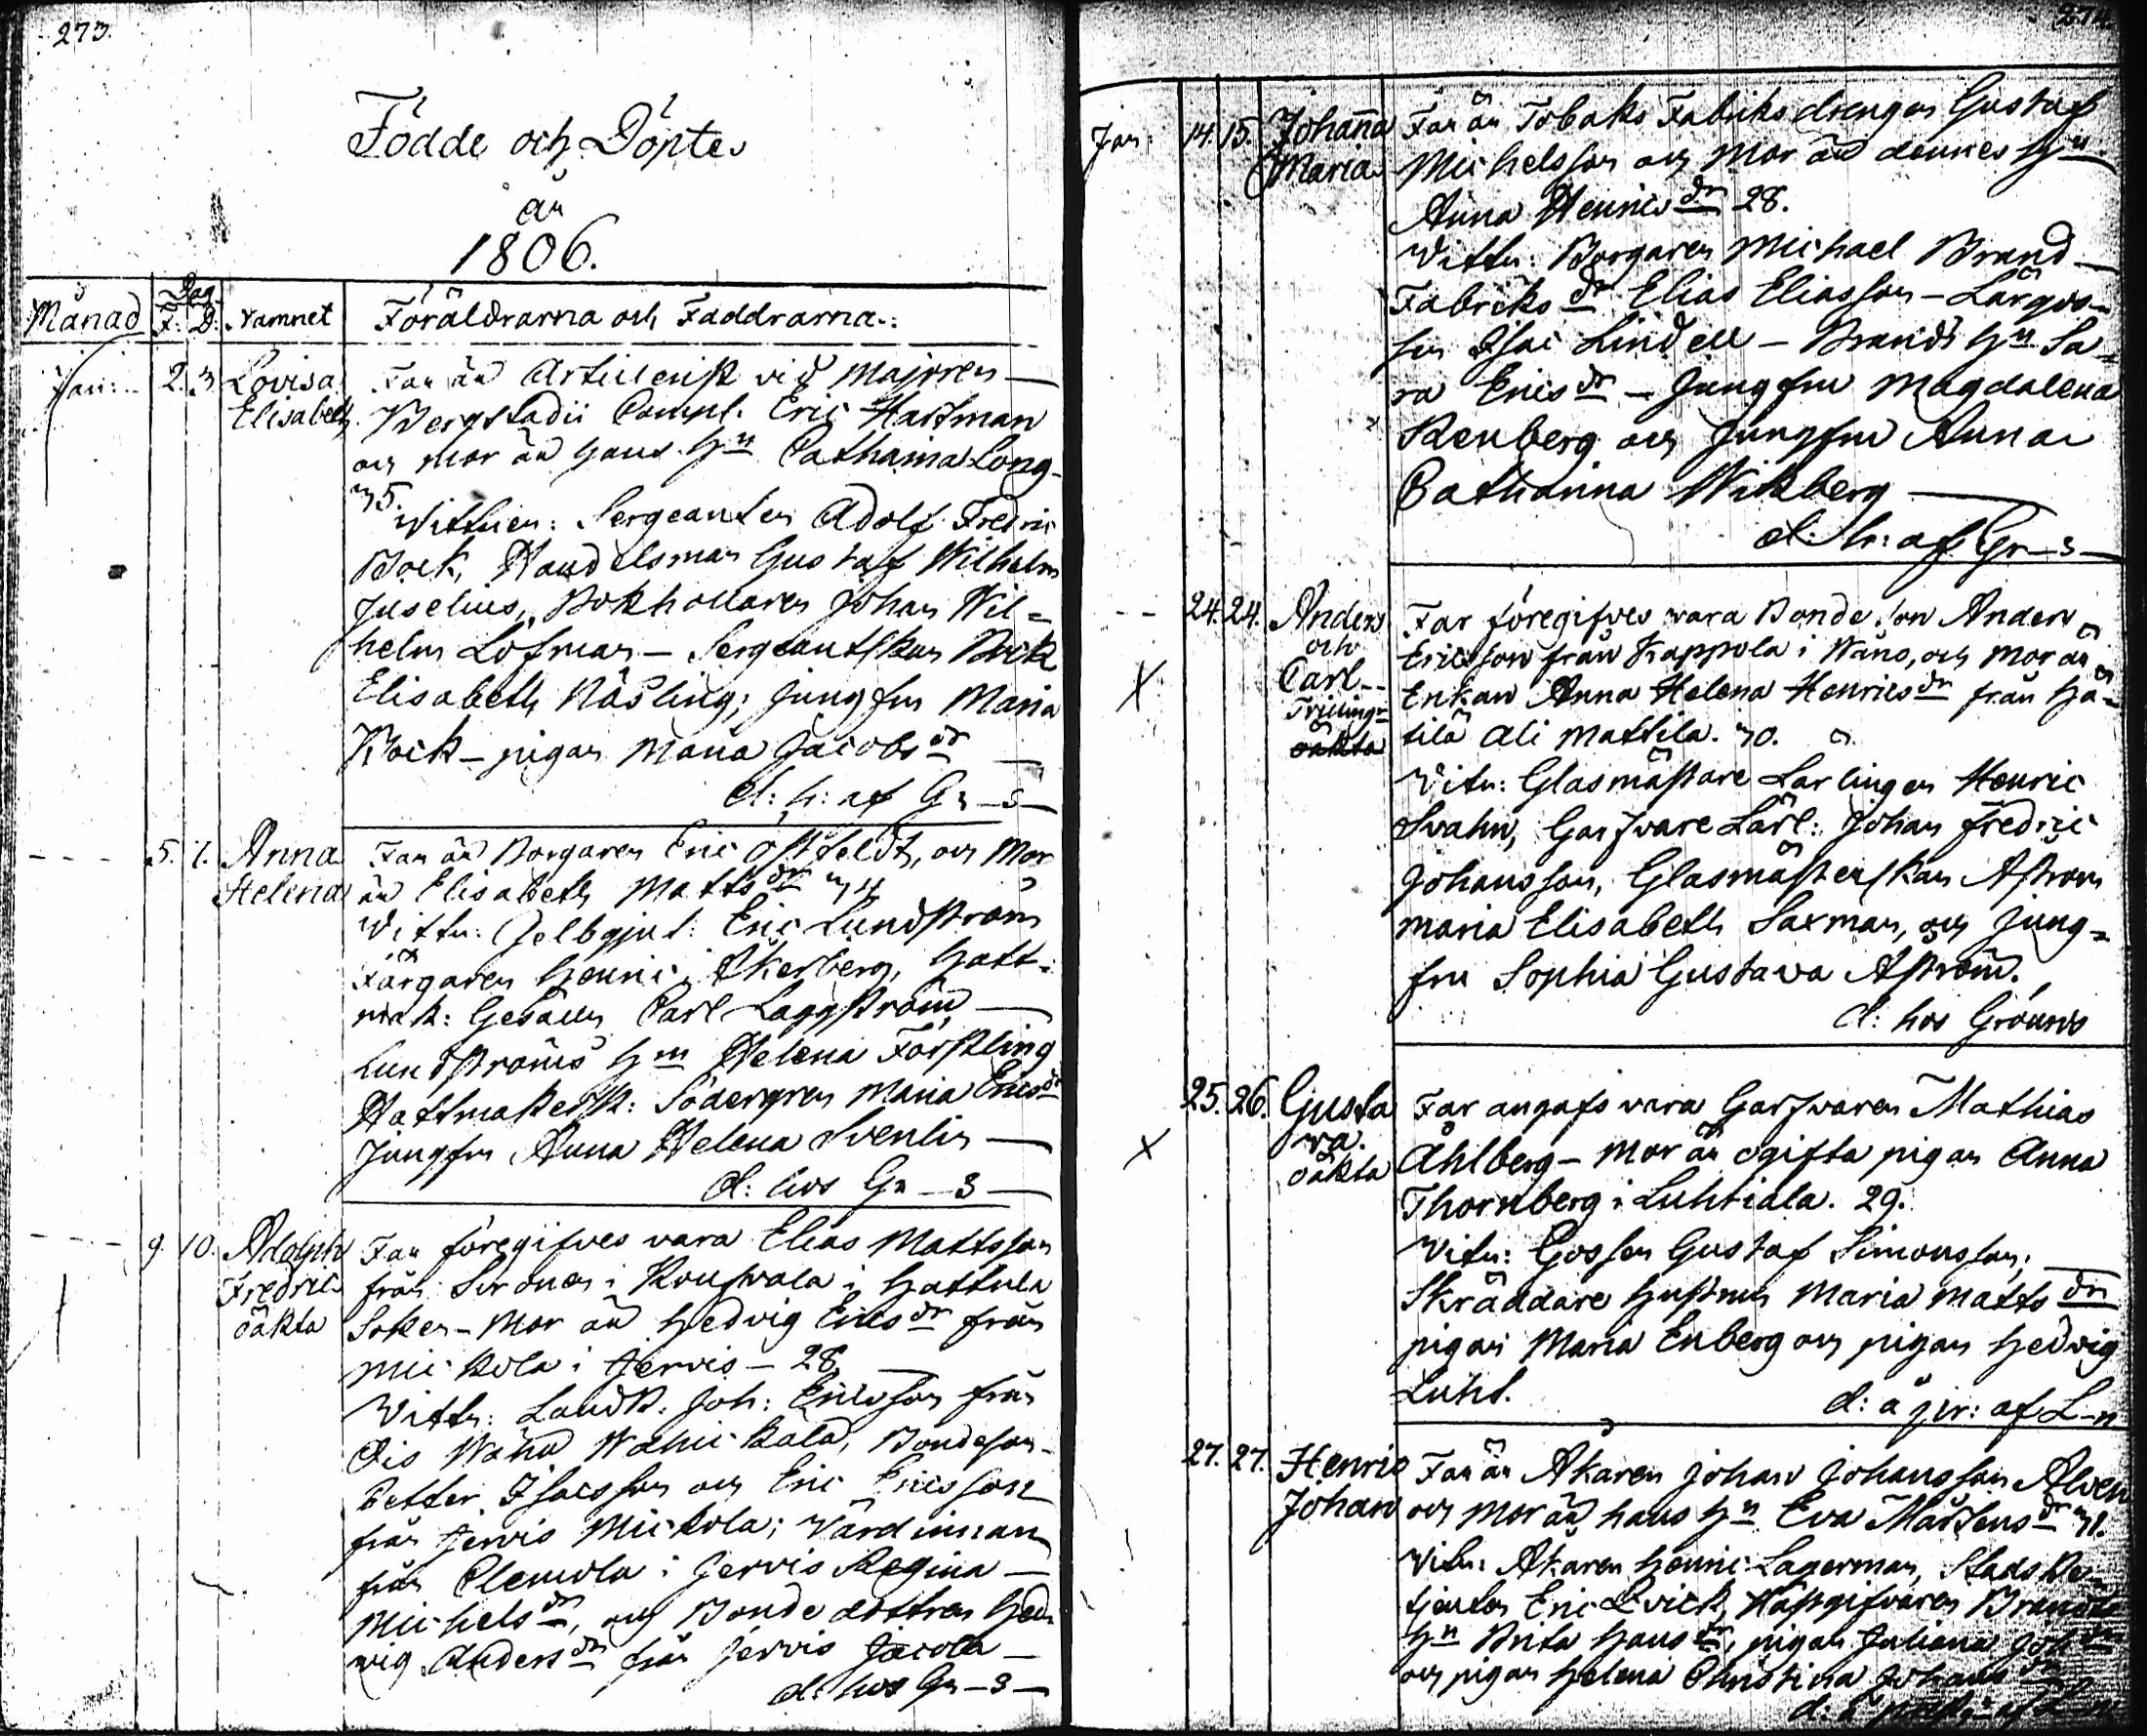 273.
Födde och Döpte
år
1806.
Månad Dag F: D: Namnet Föräldrarna och Faddrarna.
Jan: 2. 3. Lovisa Far är Artillerist vid Majoren
Elisabeth Bergstadii Comp: Eric Hartman
och Mor är hans h:u Catharina Long
35.
Wittnen: Sergeanten Adolf Fredric
Bock, Handelsman Gustaf Wilhelm
Juselius, Bokhollaren Johan Wil=
helm Löfman – Sergeantskan Bock
Elisabeth Näsling; jungfru Maria
Bock – pigan Maria Jacobs dr
d: h: af Gr–s–
5. 7. Anna Far är Borgaren Eric Östfeldt, och Mor
Helena är Elisabeth Matts dr 34
Wittn: Gelbgjut: Eric Lundström
Färgaren Henric Åkerberg, Hatt-
mak: Gesällen Carl Laggström
Lundströms h:u Helena Forstling
Hattmakersk: Södergren Maria Erics dr
Jungfru Anna Helena Svenlin
d: hos Gr–s–
9. 10. Adolph Far föregifves vara Elias Mattsson
Fredric från i i Hattula
oäkta Soken – Mor är Hedvig Erics dr från
Mickola i Jervis – 28.
Wittn: Landb. Joh: Ericsson från
Wånå Bondeson
Petter Isacsson och Eric Ericsson
från Jervis Mickola; Värdinnan
från Clemola i Jervis Regina
Michels dr, och Bonde dottren Hed
wig Anders dr från Jervis Jacola
d: hos Gr–s–
274.
Jan: 14. 15. Johanna Far är Tobaks Fabriks drengen Gustaf
Maria Michelsson och Mor är dennes h:u
Anna Henrics dr 28.
Wittn: Borgaren Michael Brand
Fabricks dr Elias Eliasson – Lärgos-
sen Isac Lindell – Brands h:u Sa=
ra Erics dr – Jungfru Magdalena
Renberg och Jungfru Anna
Catharina Wikberg
d: h: af Gr–s–
24. 24. Anders Far föregifves vara Bonde son Anders
och Ericsson från Kappola i Wånå, och Mor är
Carl Enkan Anna Helena Henrics dr från Hä=
Trilling- tilä Ali Mattila. 30.
oäkta
Vitn: Glasmästare Lärlingen Henric
Svahn, Garfvare Lärl: Johan Fredric
Johansson, Glasmästerskan Åström
Maria Elisabeth Saxman, och Jung=
fru Sophia Gustava Åström.
d: hos Gröuns
25. 26. Gusta Far angafs vara Garfvaren Mathias
va. Åhlberg – Mor är ogifta pigan Anna
oäkta Thornberg i Luhtiala. 29.
Vitn: Gossen Gustaf Simonsson;
Skräddare Hustrun Maria Matts dr
pigan Maria Enberg och pigan Hedvig
Luht. d: å pr: af L–n
27. 27. Henric Far är Åkaren Johan Johansson Alven
Johan och Mor är hans h:u Eva Mårtens dr 31.
Vitn: Åkaren Henric Lagerman, Stads Be-
tjenten Eric Qvick, Häfgifvaren Brands
h:u Brita Hans dr, pigan Juliana Joh dr
och pigan Helena Christina Johans dr